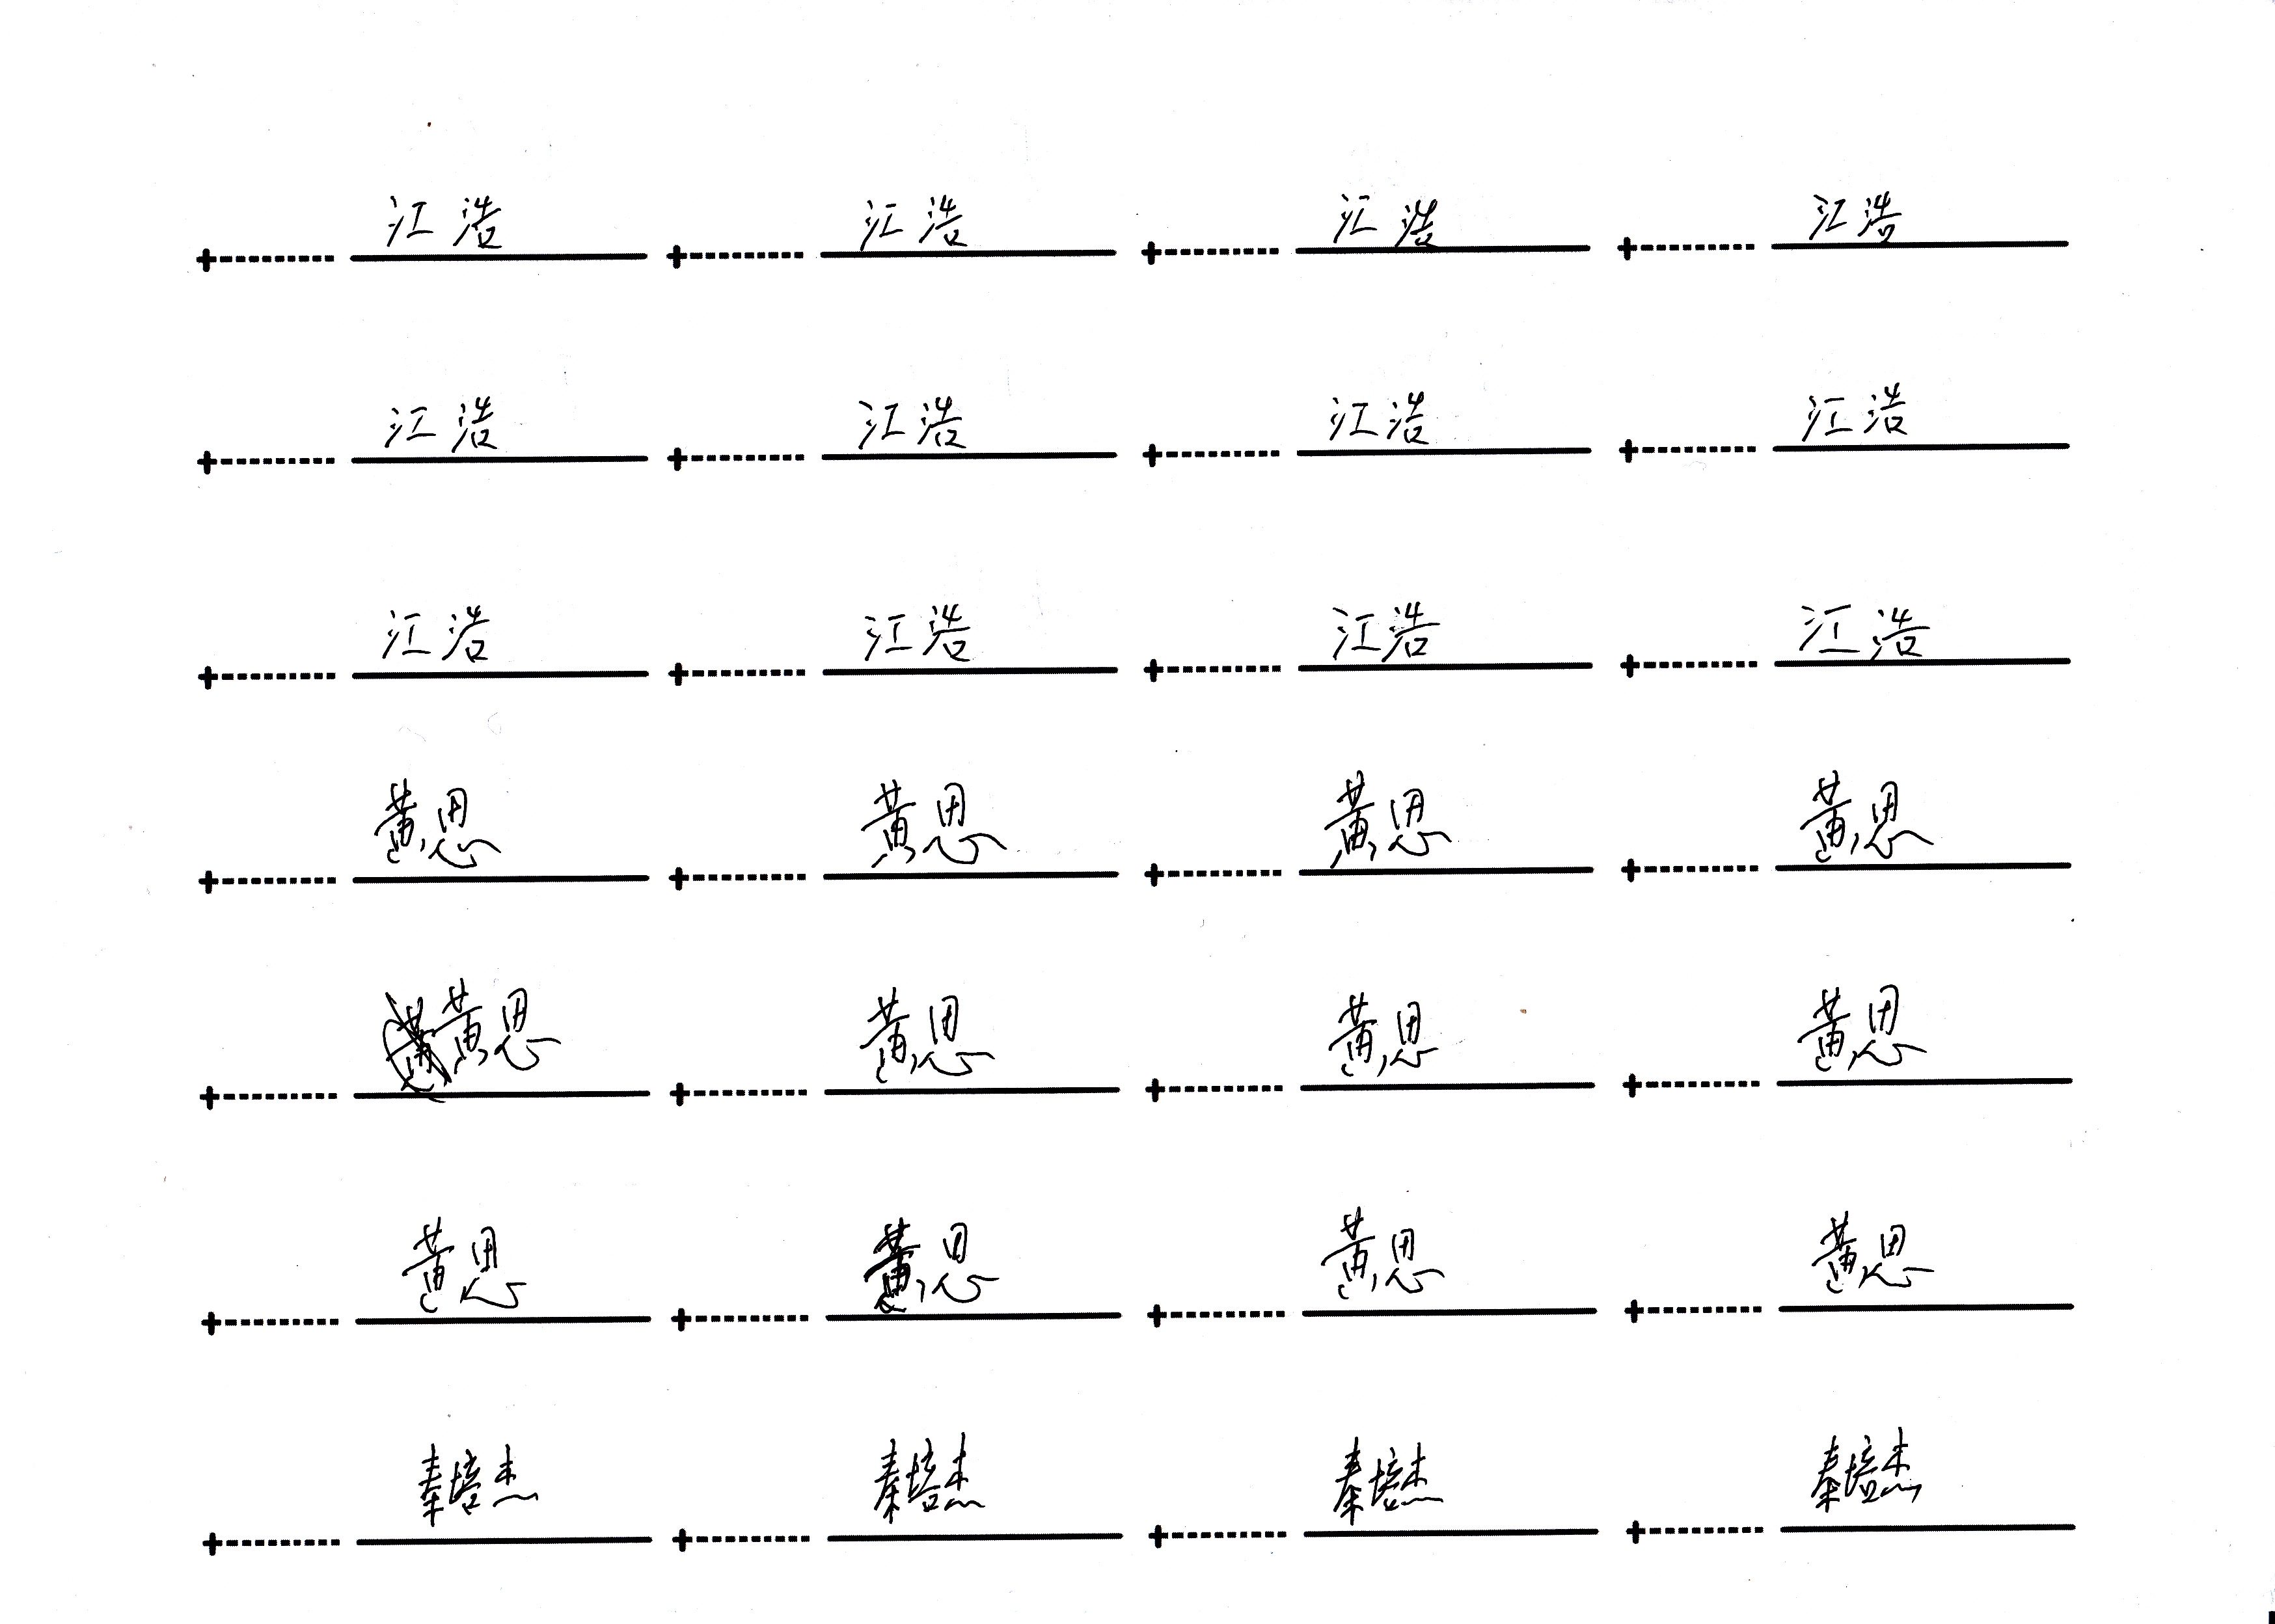 江浩 江浩 江浩 江浩
江浩 江浩 江浩 江浩
江浩 江浩 江浩 江浩
黄恩 黄恩 黄恩 黄恩
黄恩 黄恩 黄恩 黄恩
黄恩 黄恩 黄恩 黄恩
秦培杰 秦培杰 秦培杰 秦培杰